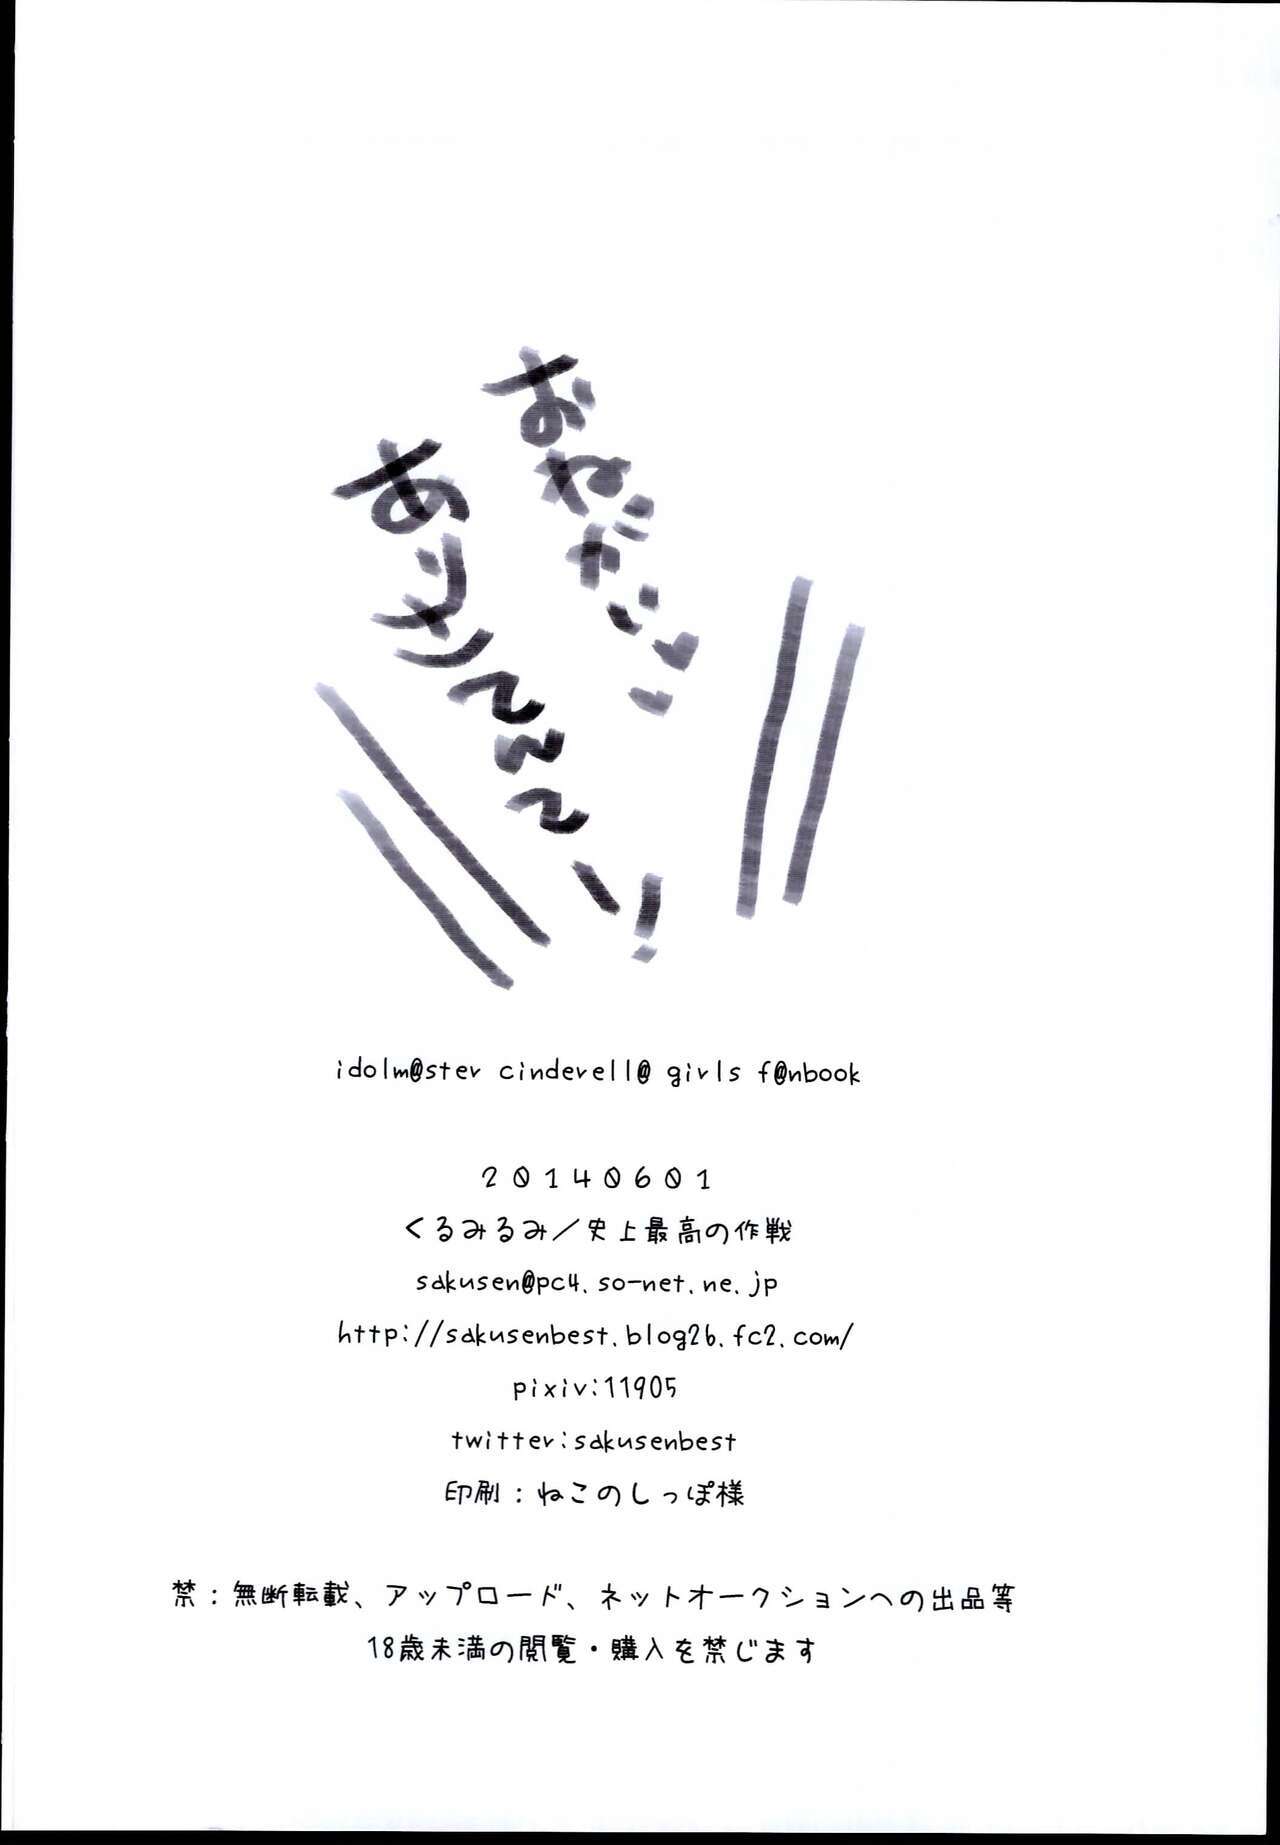 おねがい♥♥
ありさてんてー!
idolm@ster cinderell@ girls f@nbook
20140601
くるみるみ／史上最高の作戦
sakusen@pc4.so-net.ne.jp
http://sakusenbest.blog26.fc2.com/
pixiv:11905
twitter:sakusenbest
印刷：ねこのしっぽ様
禁：無断転載、アップロード、ネットオークションへの出品等
18歳未満の閲覧・購入を禁じます